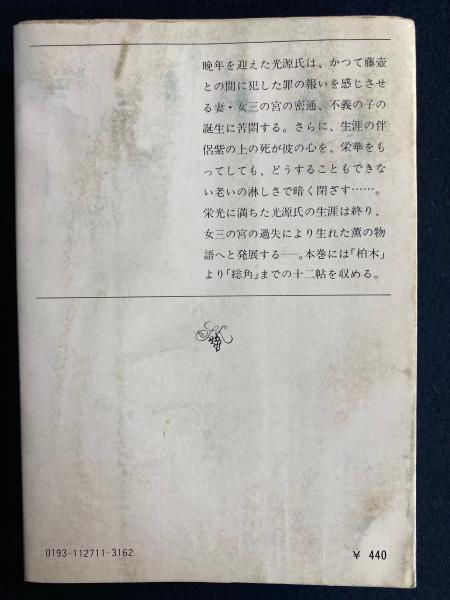 晩年を迎えた光源氏は、かつて藤壺
との間に犯した罪の報いを感じさせ
る妻・女三の宮の密通、不義の子の
誕生に苦悶する。さらに、生涯の伴
侶紫の上の死が彼の心を、栄華をも
ってしても、どうすることもできな
い老いの淋しさで暗く閉ざす……。
栄光に満ちた光源氏の生涯は終り、
女三の宮の過失により生れた薫の物
語へと発展する──。本巻には「柏木」
より「総角」までの十二帖を収める。
0193-112711-3162
¥ 440